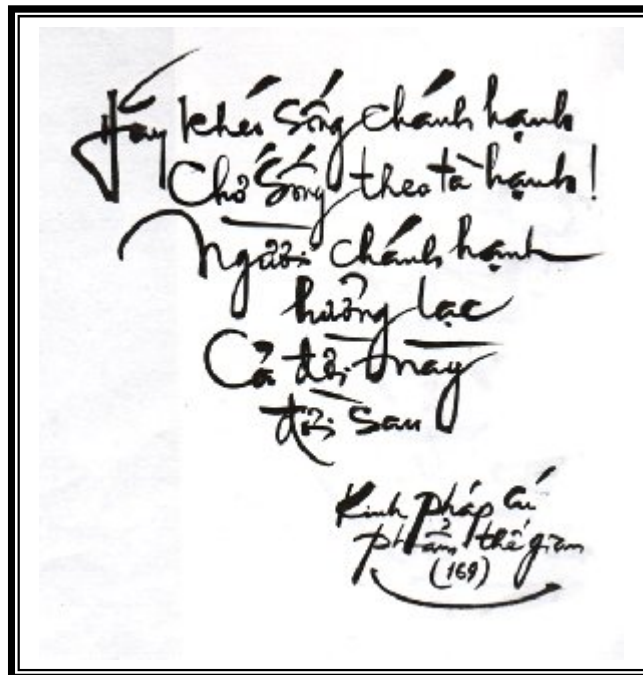 Hãy khéo sống chánh hạnh
Chớ sống theo tà hạnh!
Người chánh hạnh
hưởng lạc
Cả đời này
đời sau
Kinh pháp cú
phẩm thế gian
(169)